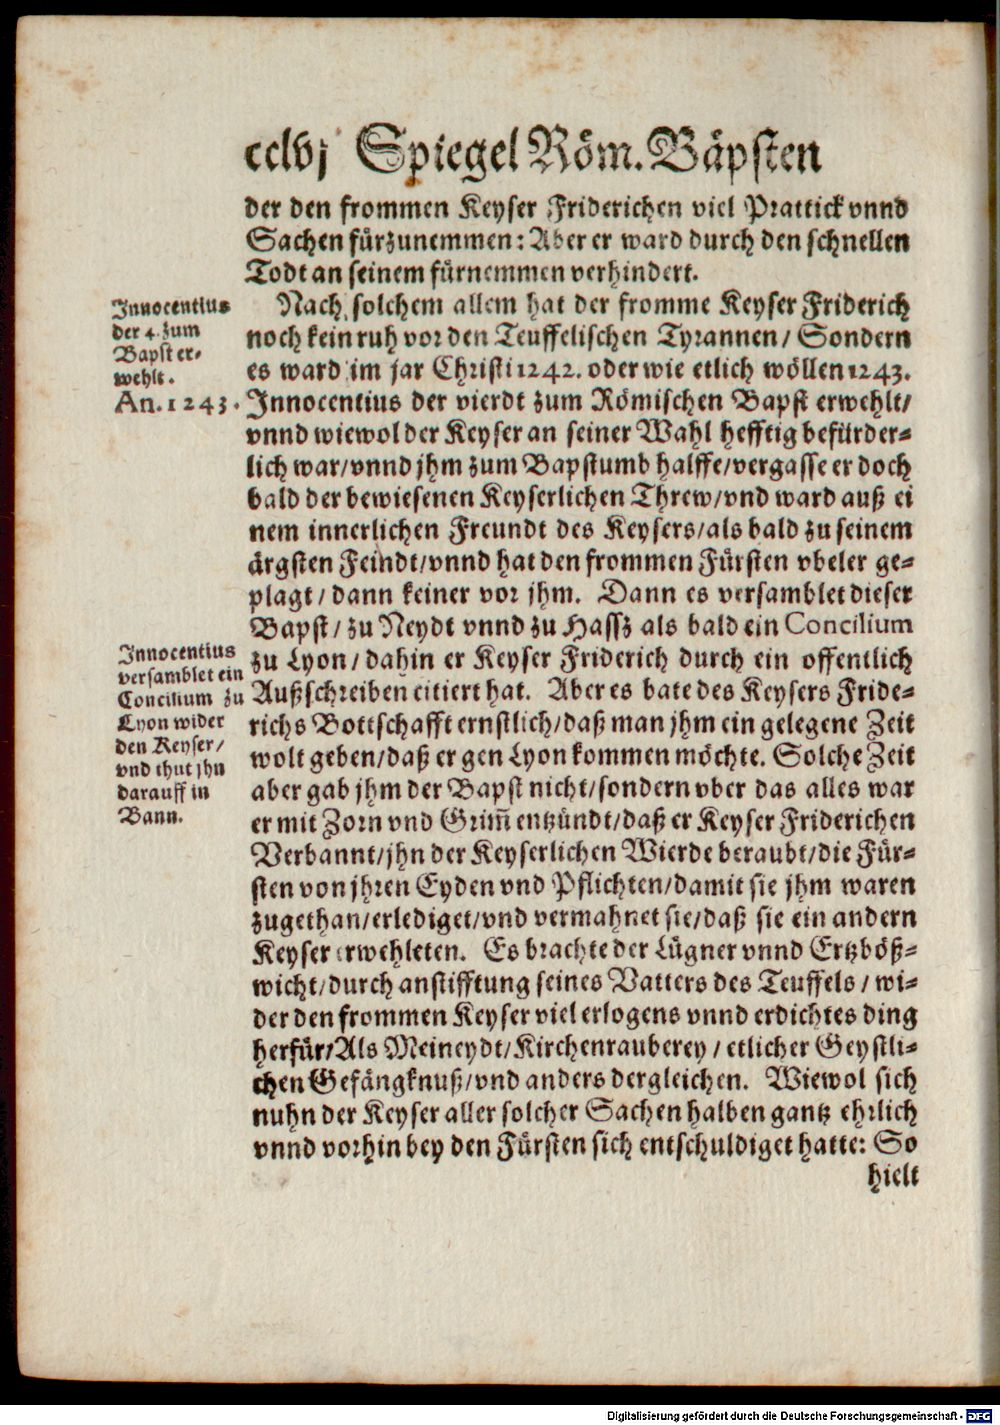 cclvj Spiegel Röm. Bäpsten
der den frommen Keyser Friderichen viel Prattick vnnd
Sachen fürzunemmen: Aber er ward durch den schnellen
Todt an seinem fürnemmen verhindert.
Nach solchem allem hat der fromme Keyser Friderich
noch kein ruh vor den Teuffelischen Tyrannen/ Sondern
es ward im jar Christi 1242. oder wie etlich wöllen 1243.
Innocentius der vierdt zum Römischen Bapst erwehlt/
vnnd wiewol der Keyser an seiner Wahl hefftig befürder-
lich war/vnnd jhm zum Bapstumb halffe/vergasse er doch
bald der bewiesenen Keyserlichen Threw/vnd ward auß ei
nem innerlichen Freundt des Keysers/als bald zu seinem
ärgsten Feindt/vnnd hat den frommen Fürsten vbeler ge-
plagt/dann keiner vor jhm. Dann es versamblet dieser
Bapst/ zu Neydt vnnd zu Hassz als bald ein Concilium
zu Lyon/dahin er Keyser Friderich durch ein offentlich
Außschreiben citiert hat. Aber es bate des Keysers Fride-
richs Bottschafft ernstlich/daß man jhm ein gelegene Zeit
wolt geben/daß er gen Lyon kommen möchte. Solche Zeit
aber gab jhm der Bapst nicht/sondern vber das alles war
er mit Zorn vnd Grim̃ entzündt/daß er Keyser Friderichen
Verbannt/jhn der Keyserlichen Wierde beraubt/die Für-
sten von jhren Eyden vnd Pflichten/damit sie jhm waren
zugethan/erlediget/vnd vermahnet sie/daß sie ein andern
Keyser erwehleten. Es brachte der Lügner vnnd Ertzböß-
wicht/durch anstifftung seines Vatters des Teuffels/ wi-
der den frommen Keyser viel erlogens vnnd erdichtes ding
herfür/Als Meineydt/Kirchenrauberey/etlicher Geystli-
chen Gefängknuß/vnd anders dergleichen. Wiewol sich
nuhn der Keyser aller solcher Sachen halben gantz ehrlich
vnnd vorhin bey den Fürsten sich entschuldiget hatte: So
hielt
Innocentius
der 4. zum
Bapst er-
wehlt.
An. 1243.
Innocentius
versamblet ein
Concilium zu
Lyon wider
den Keyser/
vnd thut jhn
darauff in
Bann.
Digitalisierung gefördert durch die Deutsche Forschungsgemeinschaft - DFG